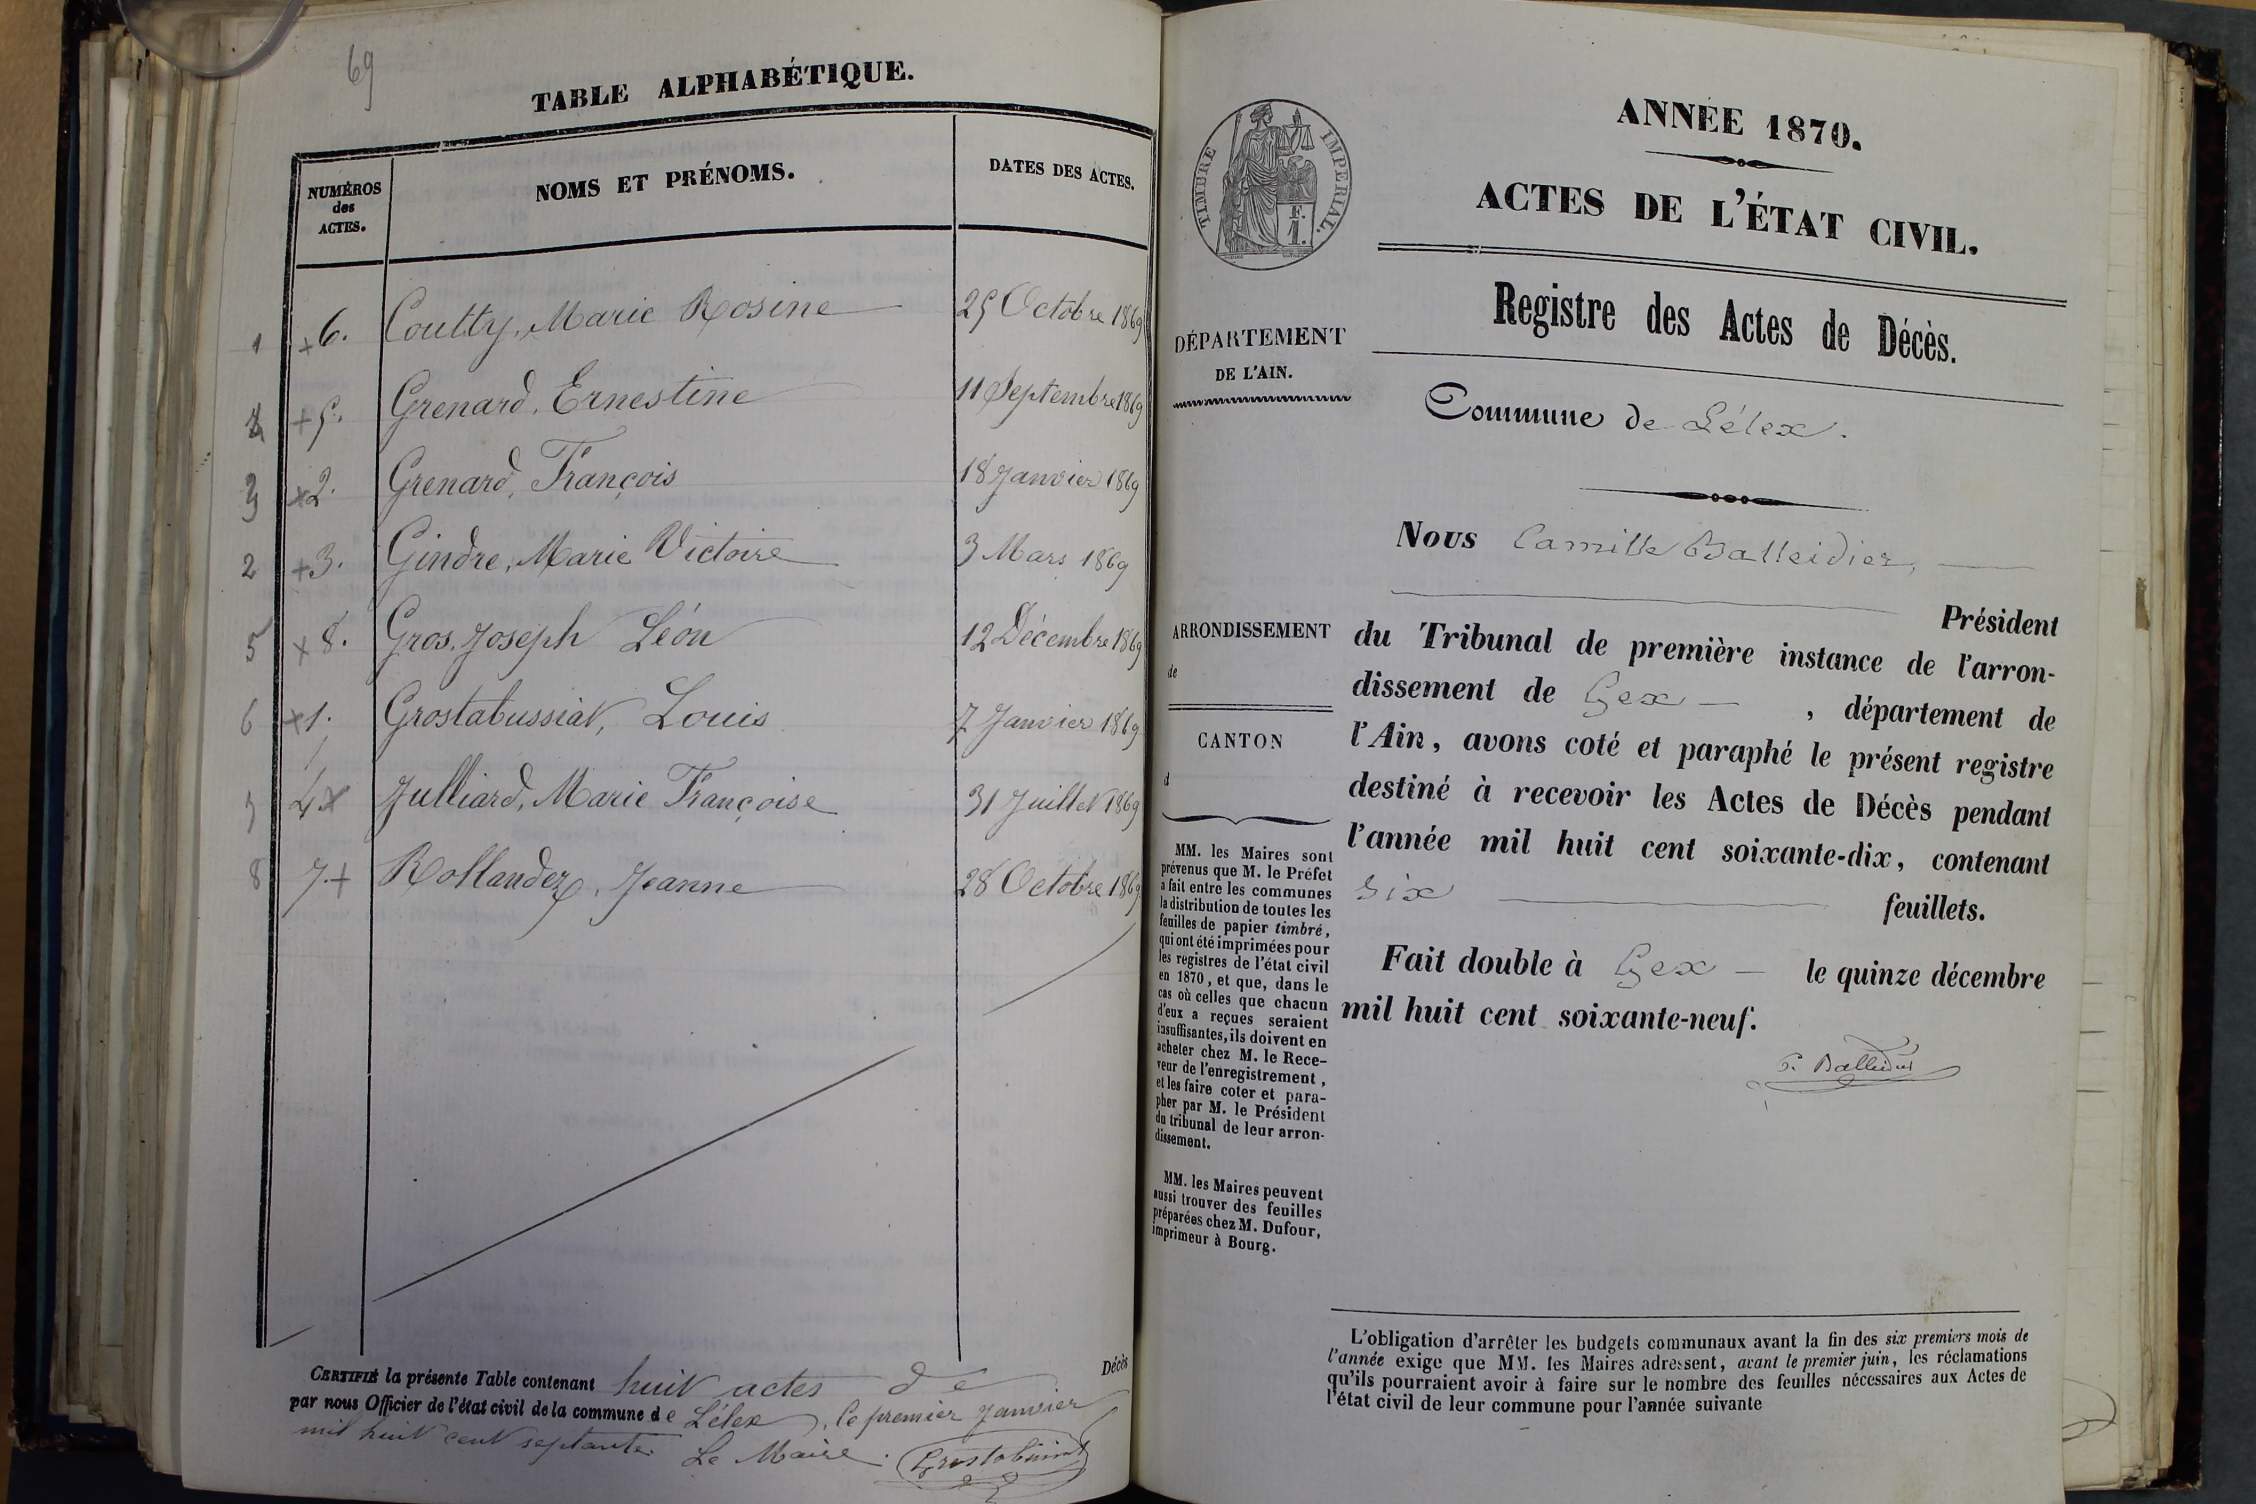 69
TABLE ALPHABÉTIQUE.
NUMÉROS
des
ACTES.
NOMS ET PRÉNOMS.
DATES DES ACTES.
1 +6. Coutty, Marie Rosine 25 Octobre 1869
4 +5. Grenard, Ernestine 11 Septembre 1869
3 x2. Grenard, François 18 Janvier 1869
2 +3. Gindre, Marie Victoire 3 Mars 1869
5 x8. Gros, Joseph Léon 12 Décembre 1869
6 x1. Grostabussiat, Louis 7 Janvier 1869
4x Julliard, Marie Françoise 31 Juillet 1869
8 7.+ Rollandez, Jeanne 28 Octobre 1869
Décès
CERTIFIÉ la présente Table contenant huit actes de
par nous Officier de l'état civil de la commune de Lélex, le premier Janvier
mil huit cent septante. Le Maire.
TIMBRE IMPERIAL.
F.
1.
ANNÉE 1870.
ACTES DE L'ÉTAT CIVIL.
Registre des Actes de Décès.
DÉPARTEMENT
DE L'AIN.
Commune de Lélex.
ARRONDISSEMENT
de
CANTON
d
MM. les Maires sont
prévenus que M. le Préfet
a fait entre les communes
la distribution de toutes les
feuilles de papier timbré,
qui ont été imprimées pour
les registres de l'état civil
en 1870, et que, dans le
cas où celles que chacun
d'eux a reçues seraient
insuffisantes, ils doivent en
acheter chez M. le Rece-
veur de l'enregistrement,
et les faire coter et para-
pher par M. le Président
du tribunal de leur arron-
dissement.
MM. les Maires peuvent
aussi trouver des feuilles
préparées chez M. Dufour,
imprimeur à Bourg.
Nous Camille Balleidier,
Président
du Tribunal de première instance de l'arron-
dissement de Gex, département de
l'Ain, avons coté et paraphé le présent registre
destiné à recevoir les Actes de Décès pendant
l'année mil huit cent soixante-dix, contenant
six feuillets.
Fait double à Gex le quinze décembre
mil huit cent soixante-neuf.
L'obligation d'arrêter les budgets communaux avant la fin des six premiers mois de
l'année exige que MM. les Maires adressent, avant le premier juin, les réclamations
qu'ils pourraient avoir à faire sur le nombre des feuilles nécessaires aux Actes de
l'état civil de leur commune pour l'année suivante